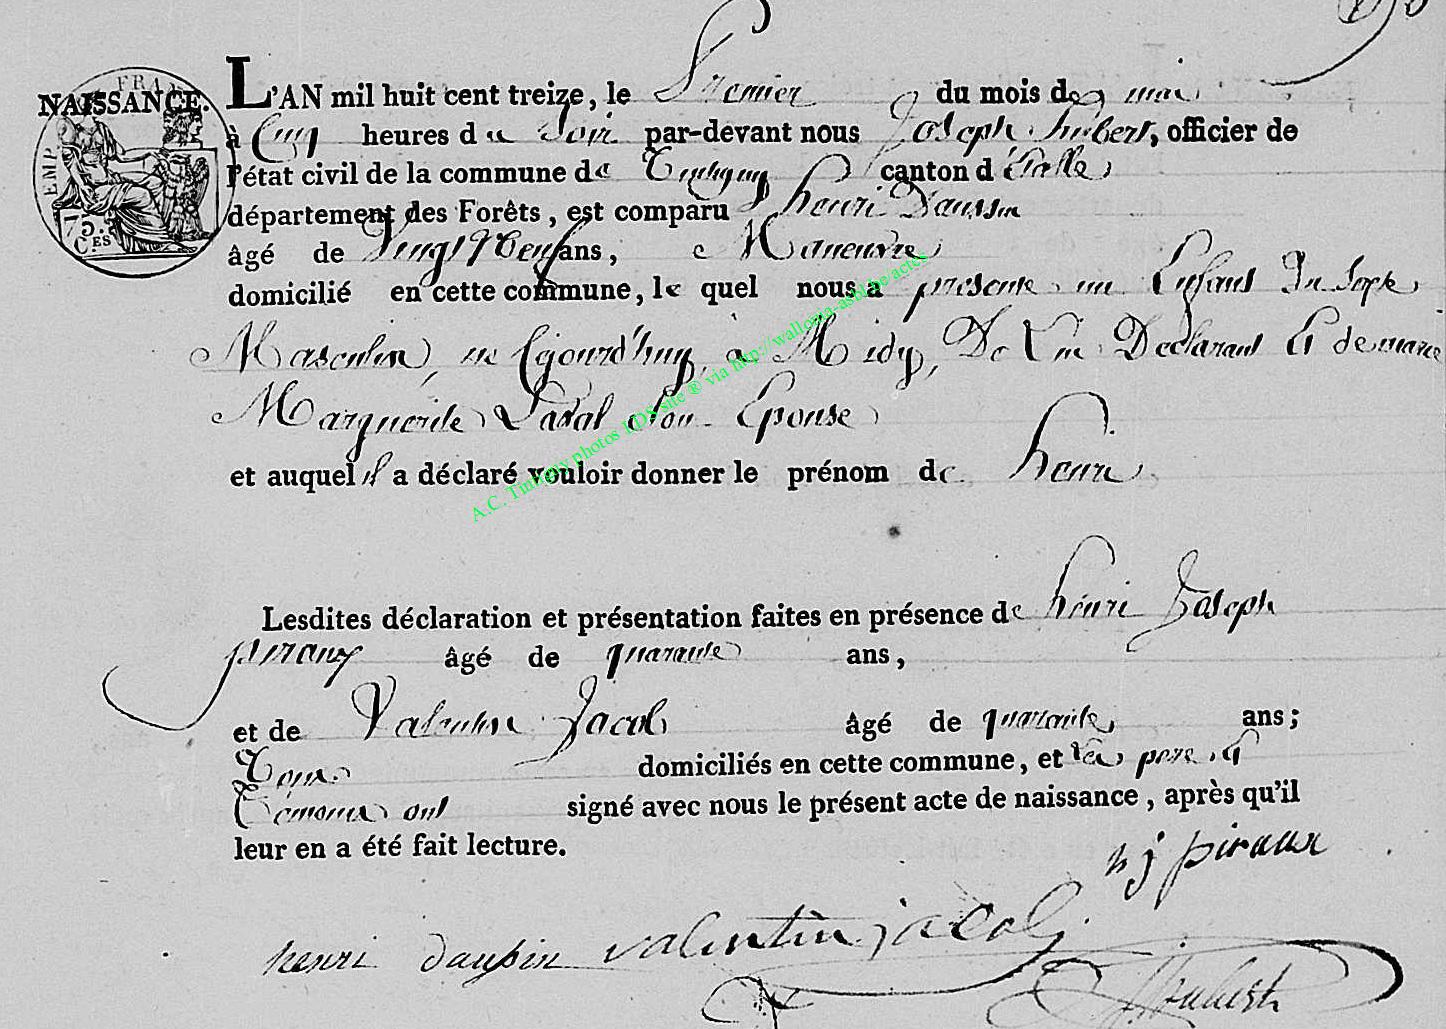 NAISSANCE.
FRA
EMP
75.
C.ES
L'AN mil huit cent treize, le Premier du mois de mai
à Cinq heures du Soir par-devant nous Joseph hubert, officier de
l'état civil de la commune de Tintigny canton d'Etalle
département des Forêts, est comparu henri Daussin
âgé de Vingt Neuf ans, Maneuvre
domicilié en cette commune, le quel nous a présente un Enfant Du Sexe
Masculin, né Cejourd'huy, à Midy, De Lui Déclarant Et de marie
Marguerite Son Epouse
et auquel il a déclaré vouloir donner le prénom de henri
Lesdites déclaration et présentation faites en présence de henri Joseph
piraux âgé de quarante ans,
et de Valentin Jacob âgé de quarante ans;
Tous domiciliés en cette commune, et les pere Et
Témoins ont signé avec nous le présent acte de naissance, après qu'il
leur en a été fait lecture.
h j piraux
henri daussin valentin jacob
Hubert
A.C. Tintigny photos LDS site ® via http://wallonia-asbl.be/actes